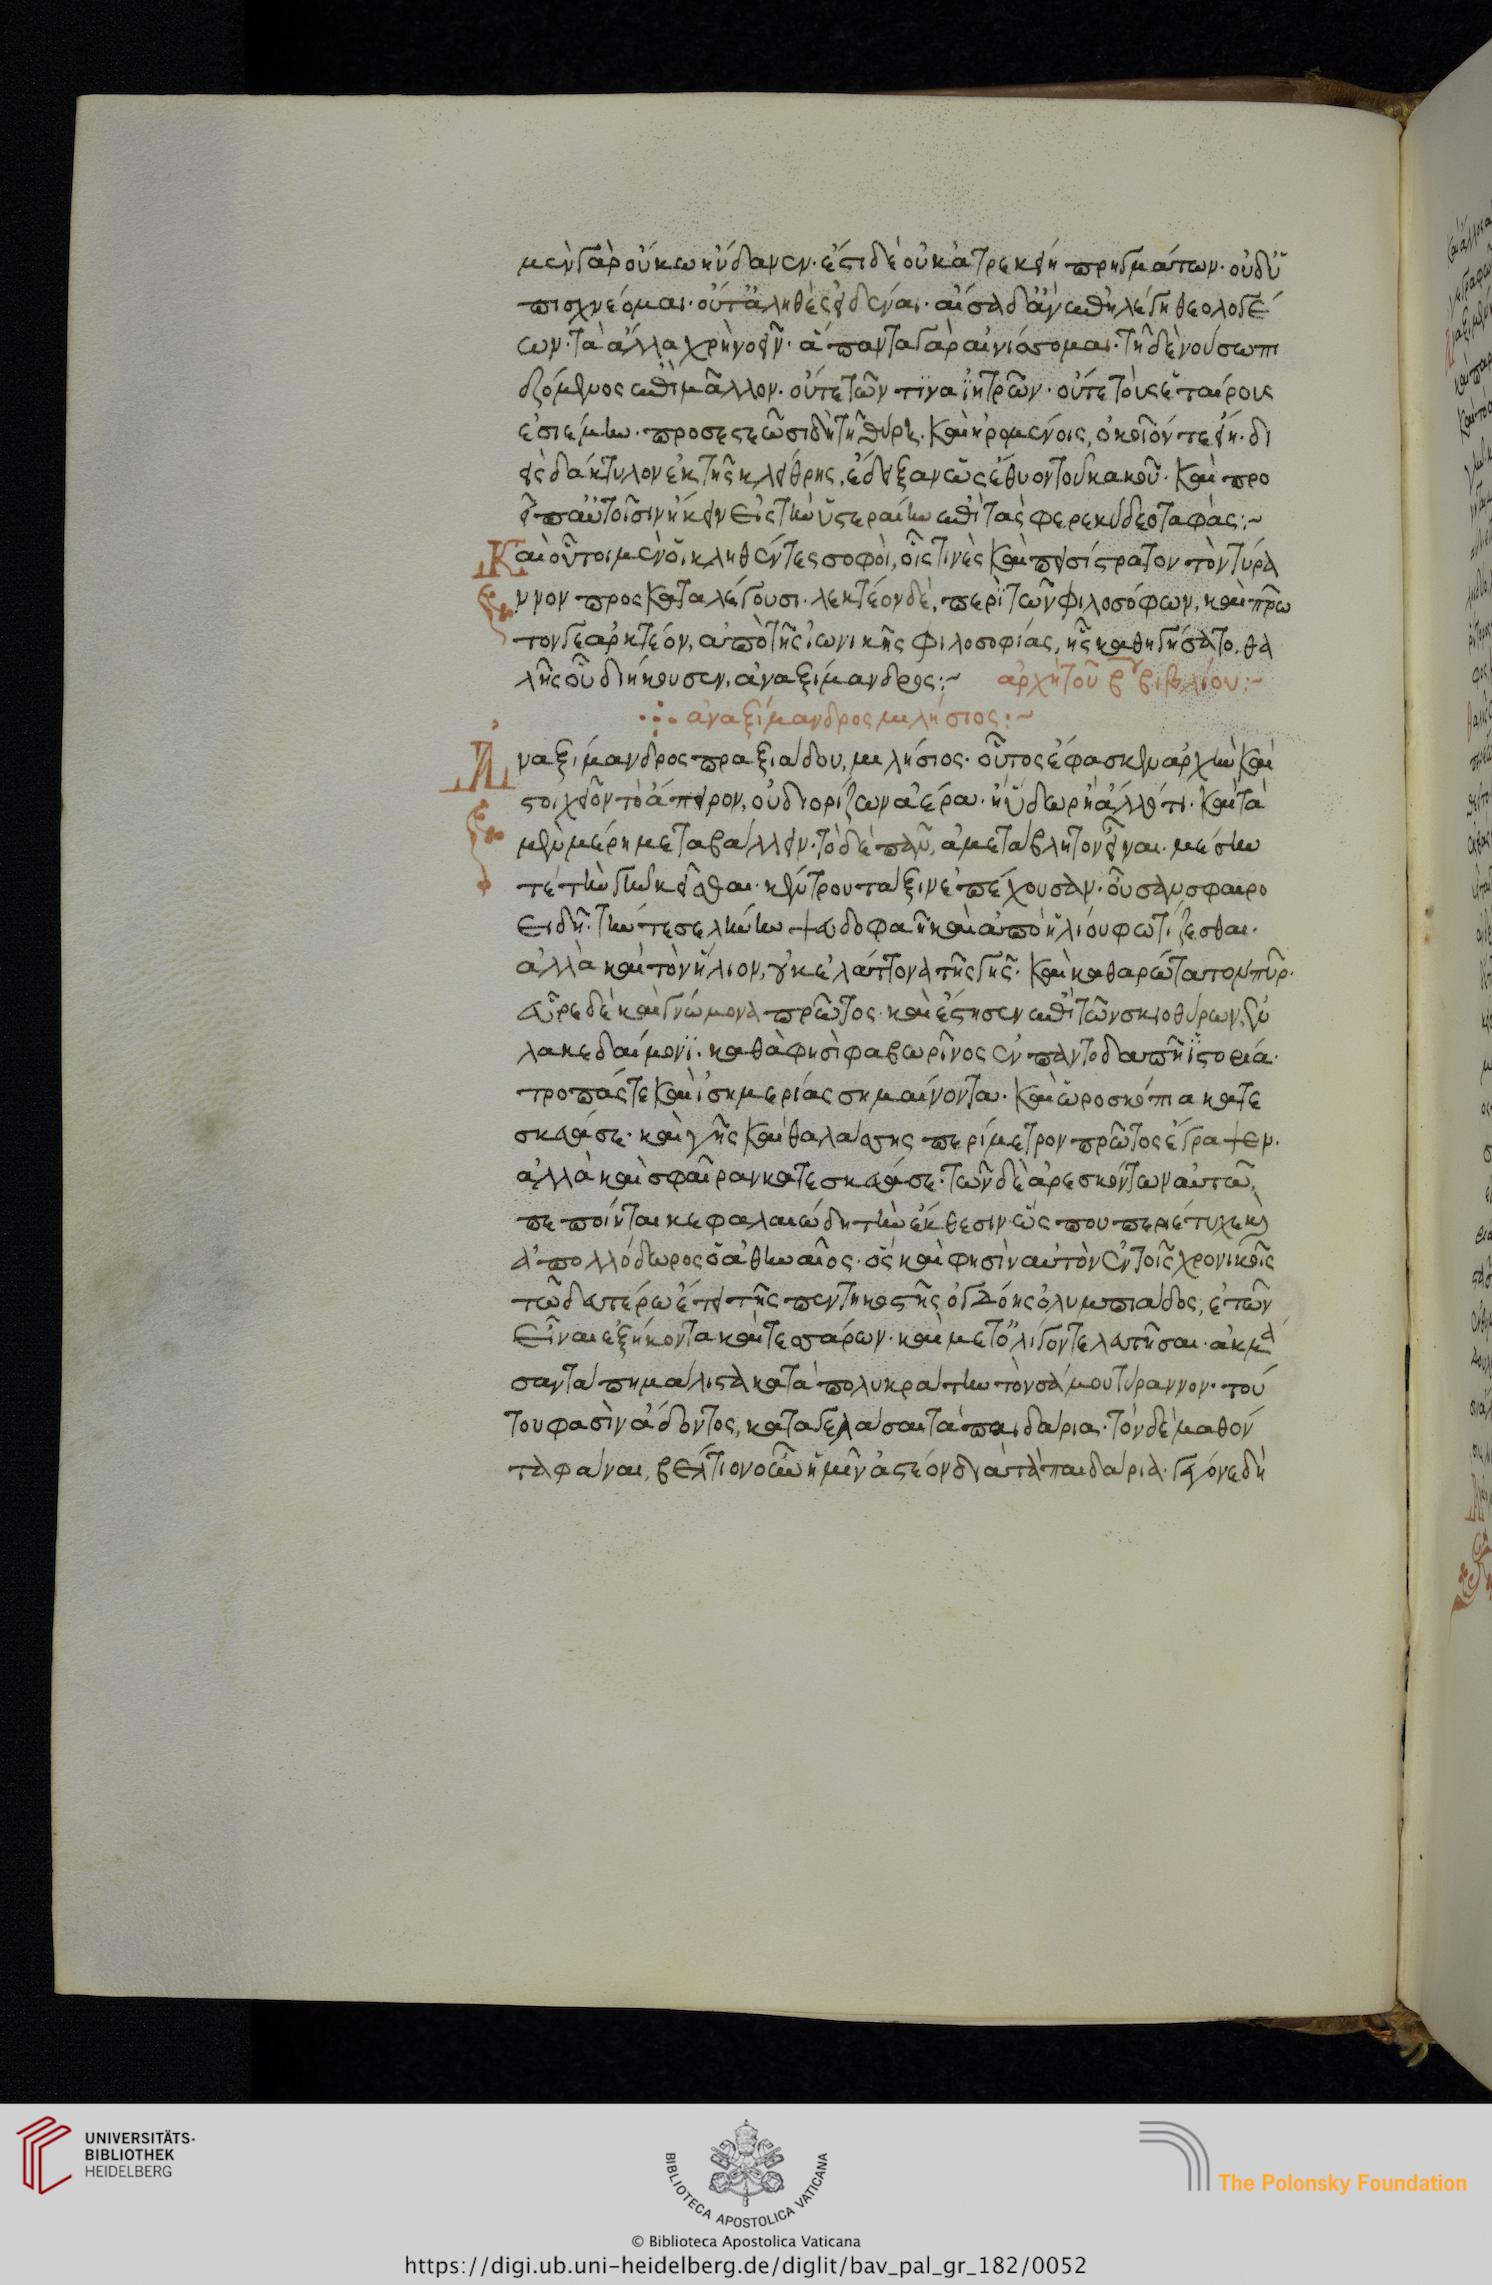 μὲν γὰρ οὔκω ἥνδανεν. ἔστι δὲ οὐκ ἀτρεκείη πρηγμάτων. οὐδ' ὑ
πισχνέομαι. οὔτ' ἀληθὲς εἰδέναι. αἴσσα δ' ἂν ἐπιλέγη θεολογέ
ων. τὰ ἄλλα χρὴ νοεῖν. ἅπαντα γὰρ αἰνίσσομαι. τῆ δὲ νούσω πι
εζόμενος ἐπὶ μᾶλλον. οὔτε τῶν τινα ἰητρῶν. οὔτε τοὺς ἑταίρους
ἐσιέμην. προσεστεῶσι δὲ τῆ θύρη. καὶ εἰρομένοις, ὁκοῖόν τε εἴη. δι
εὶς δάκτυλον ἐκ τῆς κλείθρης, ἔδειξαν ὡς ἔθυον τοῦ κακοῦ. καὶ προ
εῖπα αὐτοῖσιν ἥκειν εἰς τὴν ὑστεραίην ἐπὶ τὰς φερεκύδεος ταφάς:~
Καὶ οὗτοι μὲν οἱ κληθέντες σοφοὶ, οἷς τινὲς καὶ πεισίστρατον τὸν τύρα
ννον προσκαταλέγουσι. λεκτέον δὲ, περὶ τῶν φιλοσόφων, καὶ πρῶ
τον γε ἀρκτέον, ἀπὸ τῆς ἰωνικῆς φιλοσοφίας, ἧς καθηγήσατο, θα
λῆς οὗ διήκουσεν, ἀναξίμανδρος:~ ἀρχὴ τοῦ βου βιβλίου:~
ἀναξίμανδρος μιλήσιος:~
Ἀναξίμανδρος πραξιάδου, μιλήσιος. οὗτος ἔφασκεν ἀρχὴν καὶ
στοιχεῖον τὸ ἄπειρον, οὐ διορίζων ἀέρα. ἢ ὕδωρ ἢ ἄλλό τι. καὶ τὰ
μὲν μέρη μεταβάλλειν. τὸ δὲ πᾶν, ἀμετάβλητον εἶναι. μέσην
τε τὴν γῆν κεῖσθαι. κέντρου τάξιν ἐπέχουσαν. οὖσαν σφαιρο
ειδῆ. τήν τε σελήνην ψευδοφαῆ καὶ ἀπὸ ἡλίου φωτίζεσθαι.
ἀλλὰ καὶ τὸν ἥλιον, οὐκ ἐλάττονα τῆς γῆς. καὶ καθαρώτατον πῦρ.
εὗρε δὲ καὶ γνώμονα πρῶτος. καὶ ἔστησεν ἐπὶ τῶν σκιοθύρων, ἐν
λακεδαίμονι. καθὰ φησὶ φαβωρῖνος ἐν παντοδαπῆ ἱστορία.
τροπάς τε καὶ ἰσημερίας σημαίνοντα. καὶ ὡροσκόπια κατε
σκεύασε. καὶ γῆς καὶ θαλάσσης περίμετρον πρῶτος ἔγραψεν.
ἀλλὰ καὶ σφαῖραν κατεσκεύασε. τῶν δὲ ἀρεσκόντων αὐτῶ,
πεποίηται κεφαλαιώδη τὴν ἔκθεσιν. ὥς που περιέτυχε καὶ
ἀπολλόδωρος ὁ ἀθηναῖος. ὃς καὶ φησὶν αὐτὸν ἐν τοῖς χρονικοῖς
τῶ δευτέρω ἔτει τῆς πεντηκοστῆς ὀγδόης ὀλυμπιάδος, ἐτῶν
εἶναι ἑξήκοντα καὶ τεσσάρων. καὶ μετ' ὀλίγον τελευτῆσαι. ἀκμά
σαντά πη μάλιστα κατὰ πολυκράτην τὸν σάμου τύραννον. τού
του φασὶν ἄδοντος, καταγελάσαι τὰ παιδάρια. τὸν δὲ μαθόν
τα φάναι, βέλτιον οὖν ἡμῖν ἀστέον διὰ τὰ παιδάρια. γέγονε δὴ
UNIVERSITÄTS-
BIBLIOTHEK
HEIDELBERG
BIBLIOTECA APOSTOLICA VATICANA
The Polonsky Foundation
© Biblioteca Apostolica Vaticana
https://digi.ub.uni-heidelberg.de/diglit/bav_pal_gr_182/0052